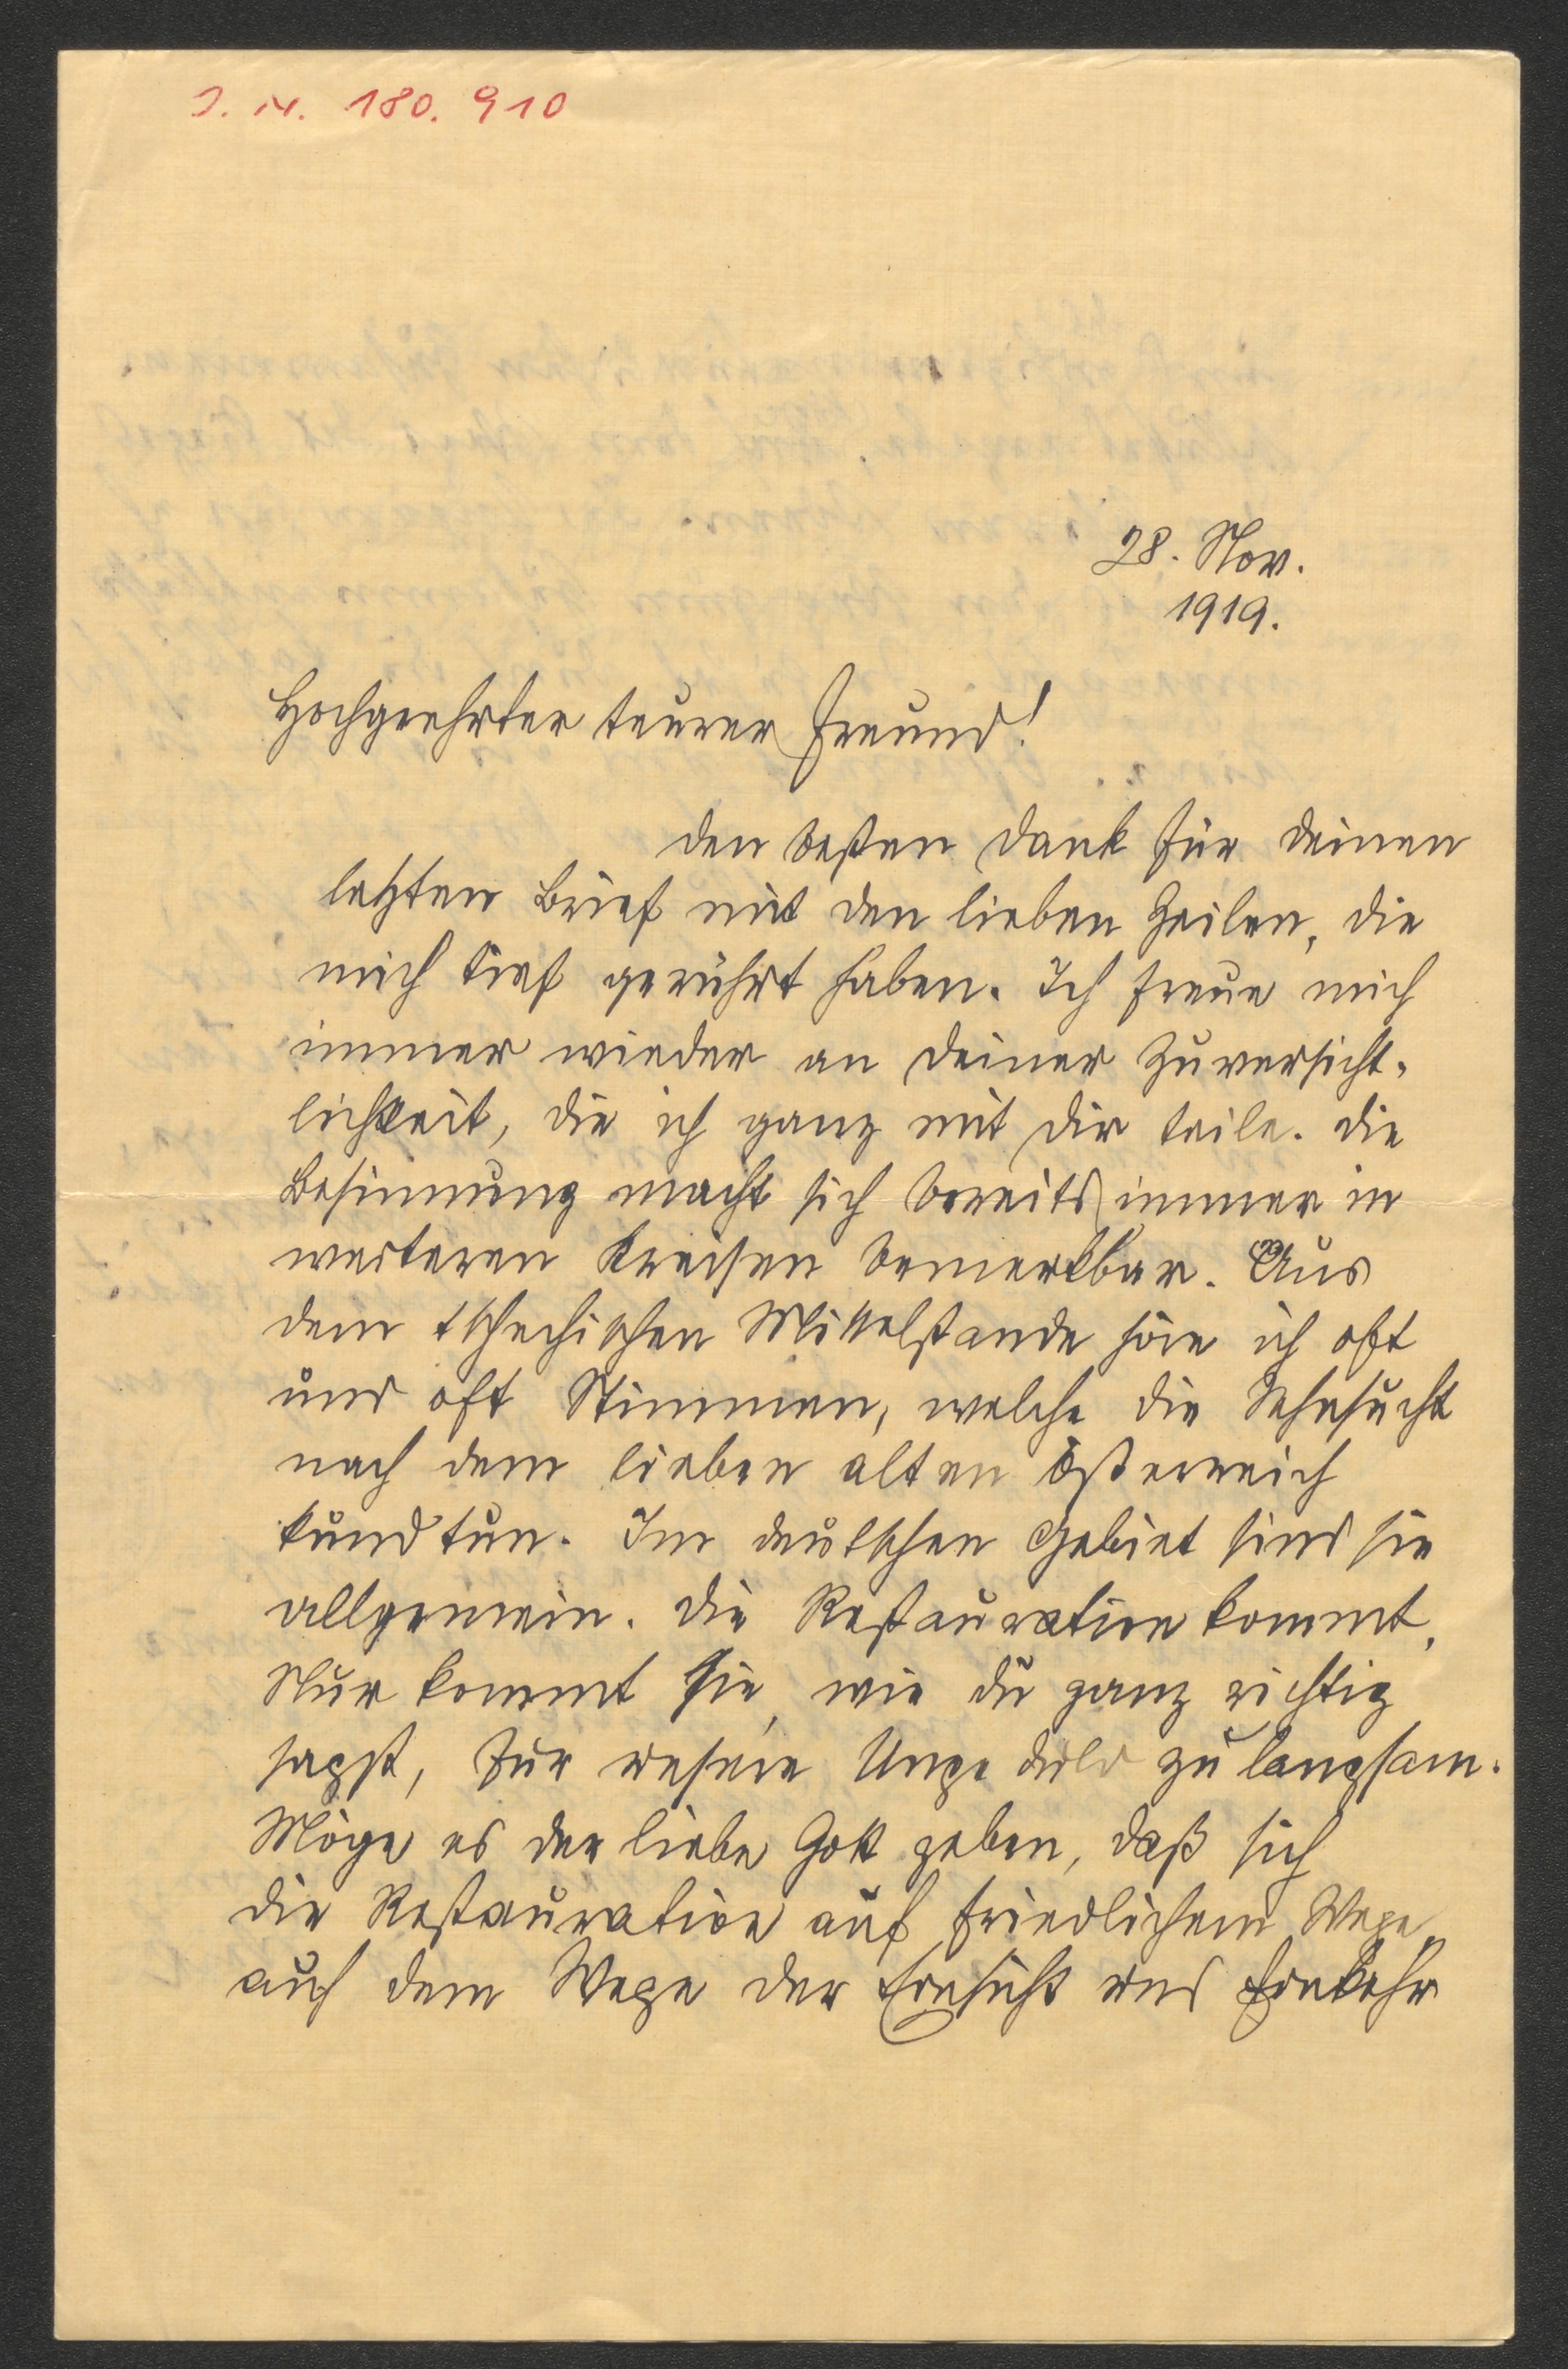 J. N. 180.910
28. Nov.
1919.
Hochgeehrter teurer Freund!
den besten Dank für Deinen
letzten Brief mit den lieben Zeilen, die
mich tief gerührt haben. Ich freue mich
immer wieder an Deiner Zuversicht-
lichkeit, die ich ganz mit Dir teile. Die
Besinnung macht sich bereits immer in
weiteren Kreisen bemerkbar. Aus
dem tschechischen Mittelstande höre ich oft
und oft Stimmen, welche die Sehnsucht
nach dem lieben alten Österreich
kundtun. Im deutschen Gebiet sind sie
allgemein. Die Restauration kommt.
Nur kommt sie, wie du ganz richtig
sagst, für unsere Ungeduld zu langsam.
Möge es der liebe Gott geben, daß sich
die Restauration auf friedlichem Wege,
auf dem Wege der Einsicht und Einkehr